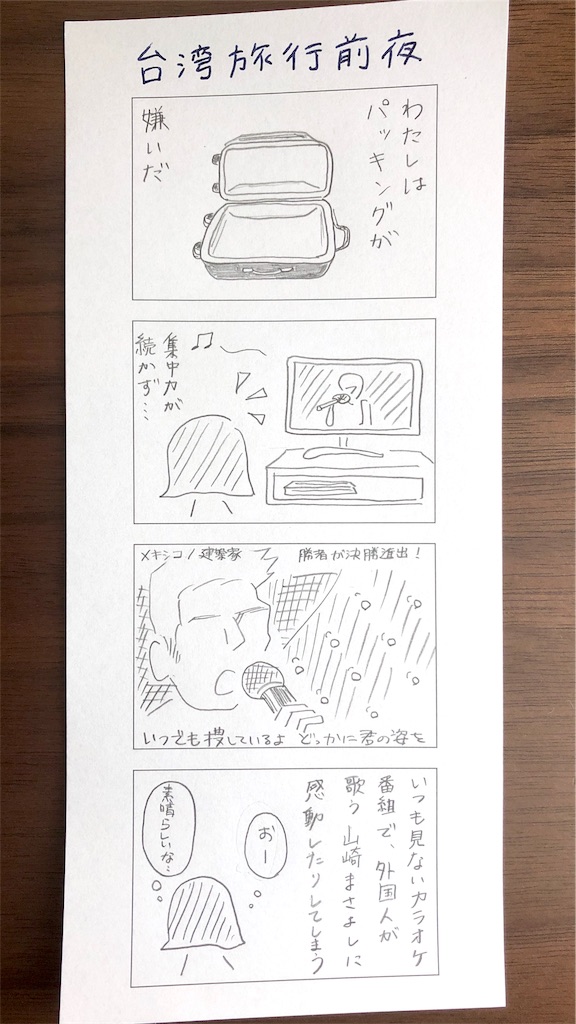 台湾旅行前夜
わたしは
パッキングが
嫌いだ
集中力が
続かず…
メキシコ/建築家
勝者が決勝進出!
いつでも捜しているよ どっかに君の姿を
いつも見ないカラオケ
番組で、外国人が
歌う山崎まさよしに
感動したりしてしまう
おー
素晴らしいな…